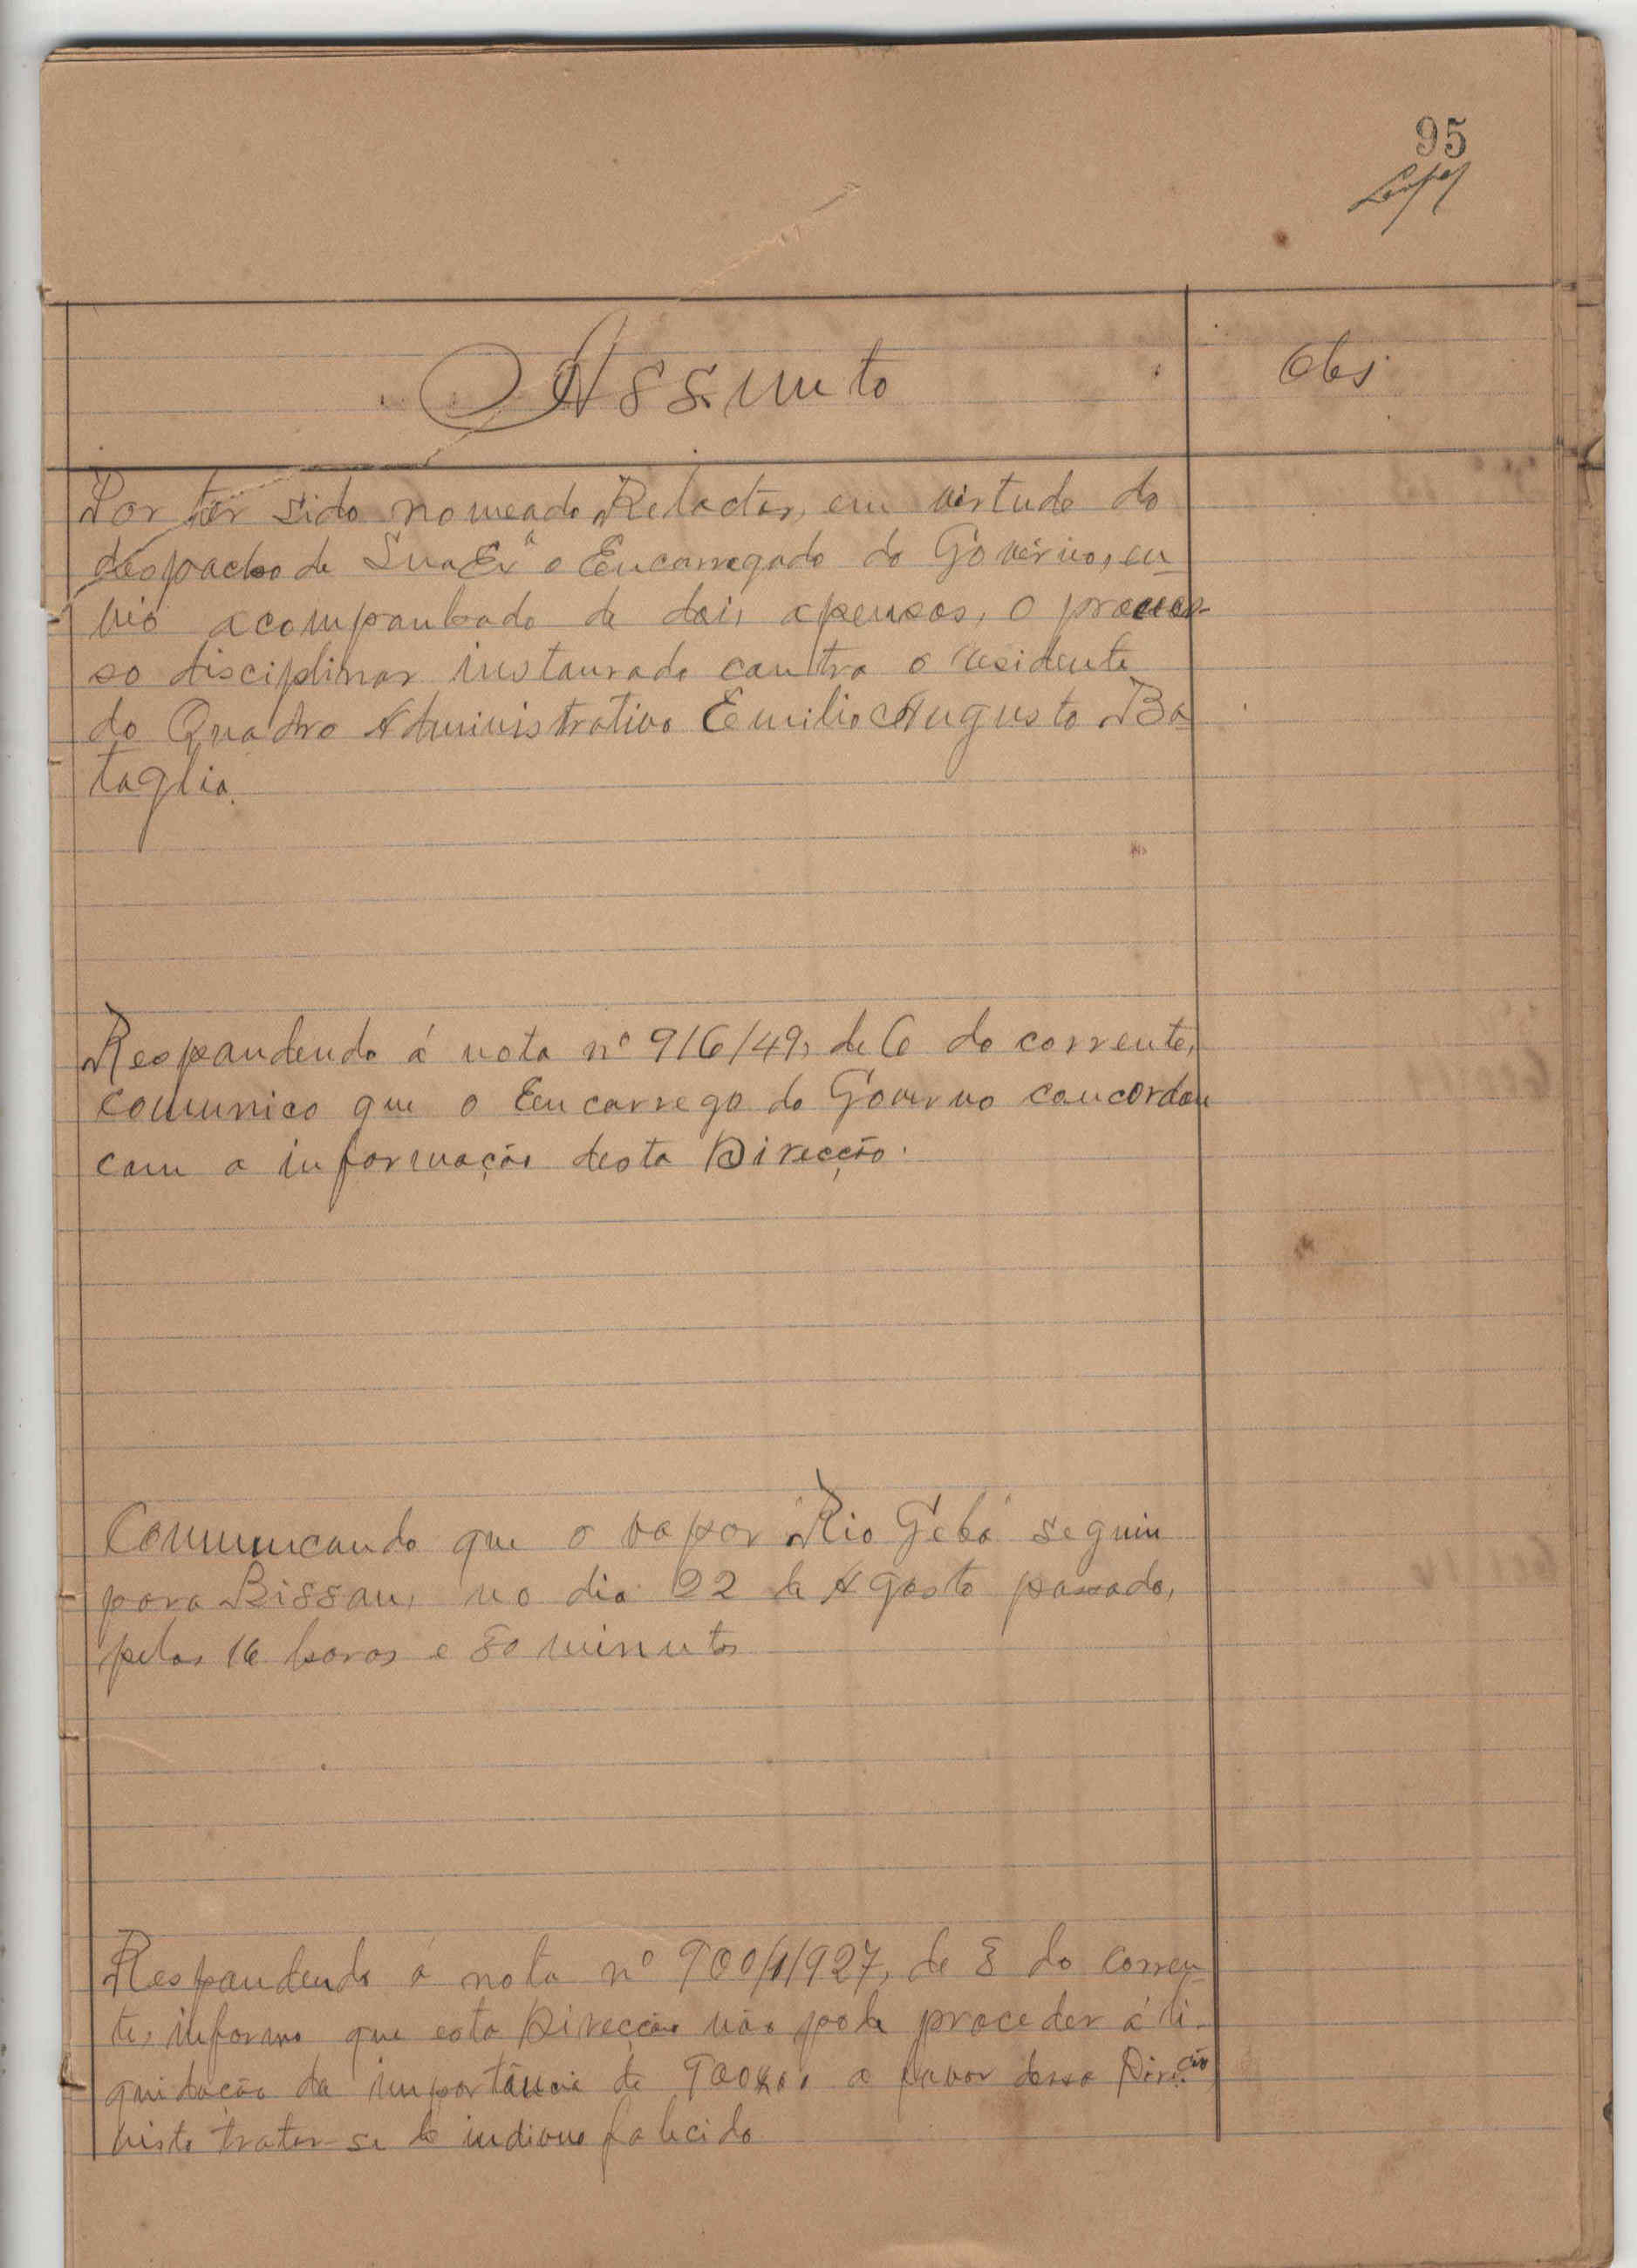 95
Lopes
Assunto
Obs
Por ter sido nomeado Redactor, em virtude do
despacho de Sua Exª o Encarregado do Govêrno, en-
vio acompanhado de dois apensos, o proces-
so disciplinar instaurado contra o residente
do Quadro Administrativo Emilio Augusto Ba-
taglia.
Respondendo á nota nº 916/49, de 6 do corrente,
comunico que o Encarrego do Governo concordou
com a informação desta Direcção.
Comunicando que o vapor "Rio Gebá" seguiu
para Bissau, no dia 22 de Agosto passado,
pelas 16 horas e 50 minutos
Respondendo á nota nº 900/1/927, de 8 do corren-
te, informo que esta Direcção não pode proceder á li-
quidação da importância de a favor dessa Direcção
visto tratar-se de falecido